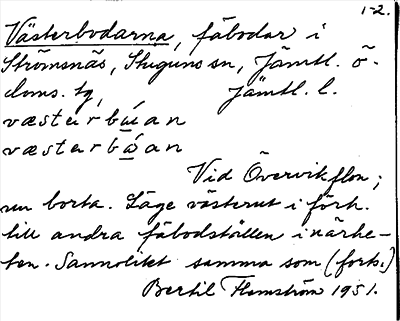 1-2.
Västerbodarna, fäbodar i
Strömsnäs, Stuguns sn, Jämtl. ö-
doms. tg, Jämtl. l.
væstarbúan
væstarbóan
Vid Överviksflon;
nu borta. Läge västerut i förh.
till andra fäbodställen i närhe-
ten. Sannolikt samma som (forts.)
Bertil Flemström 1951.